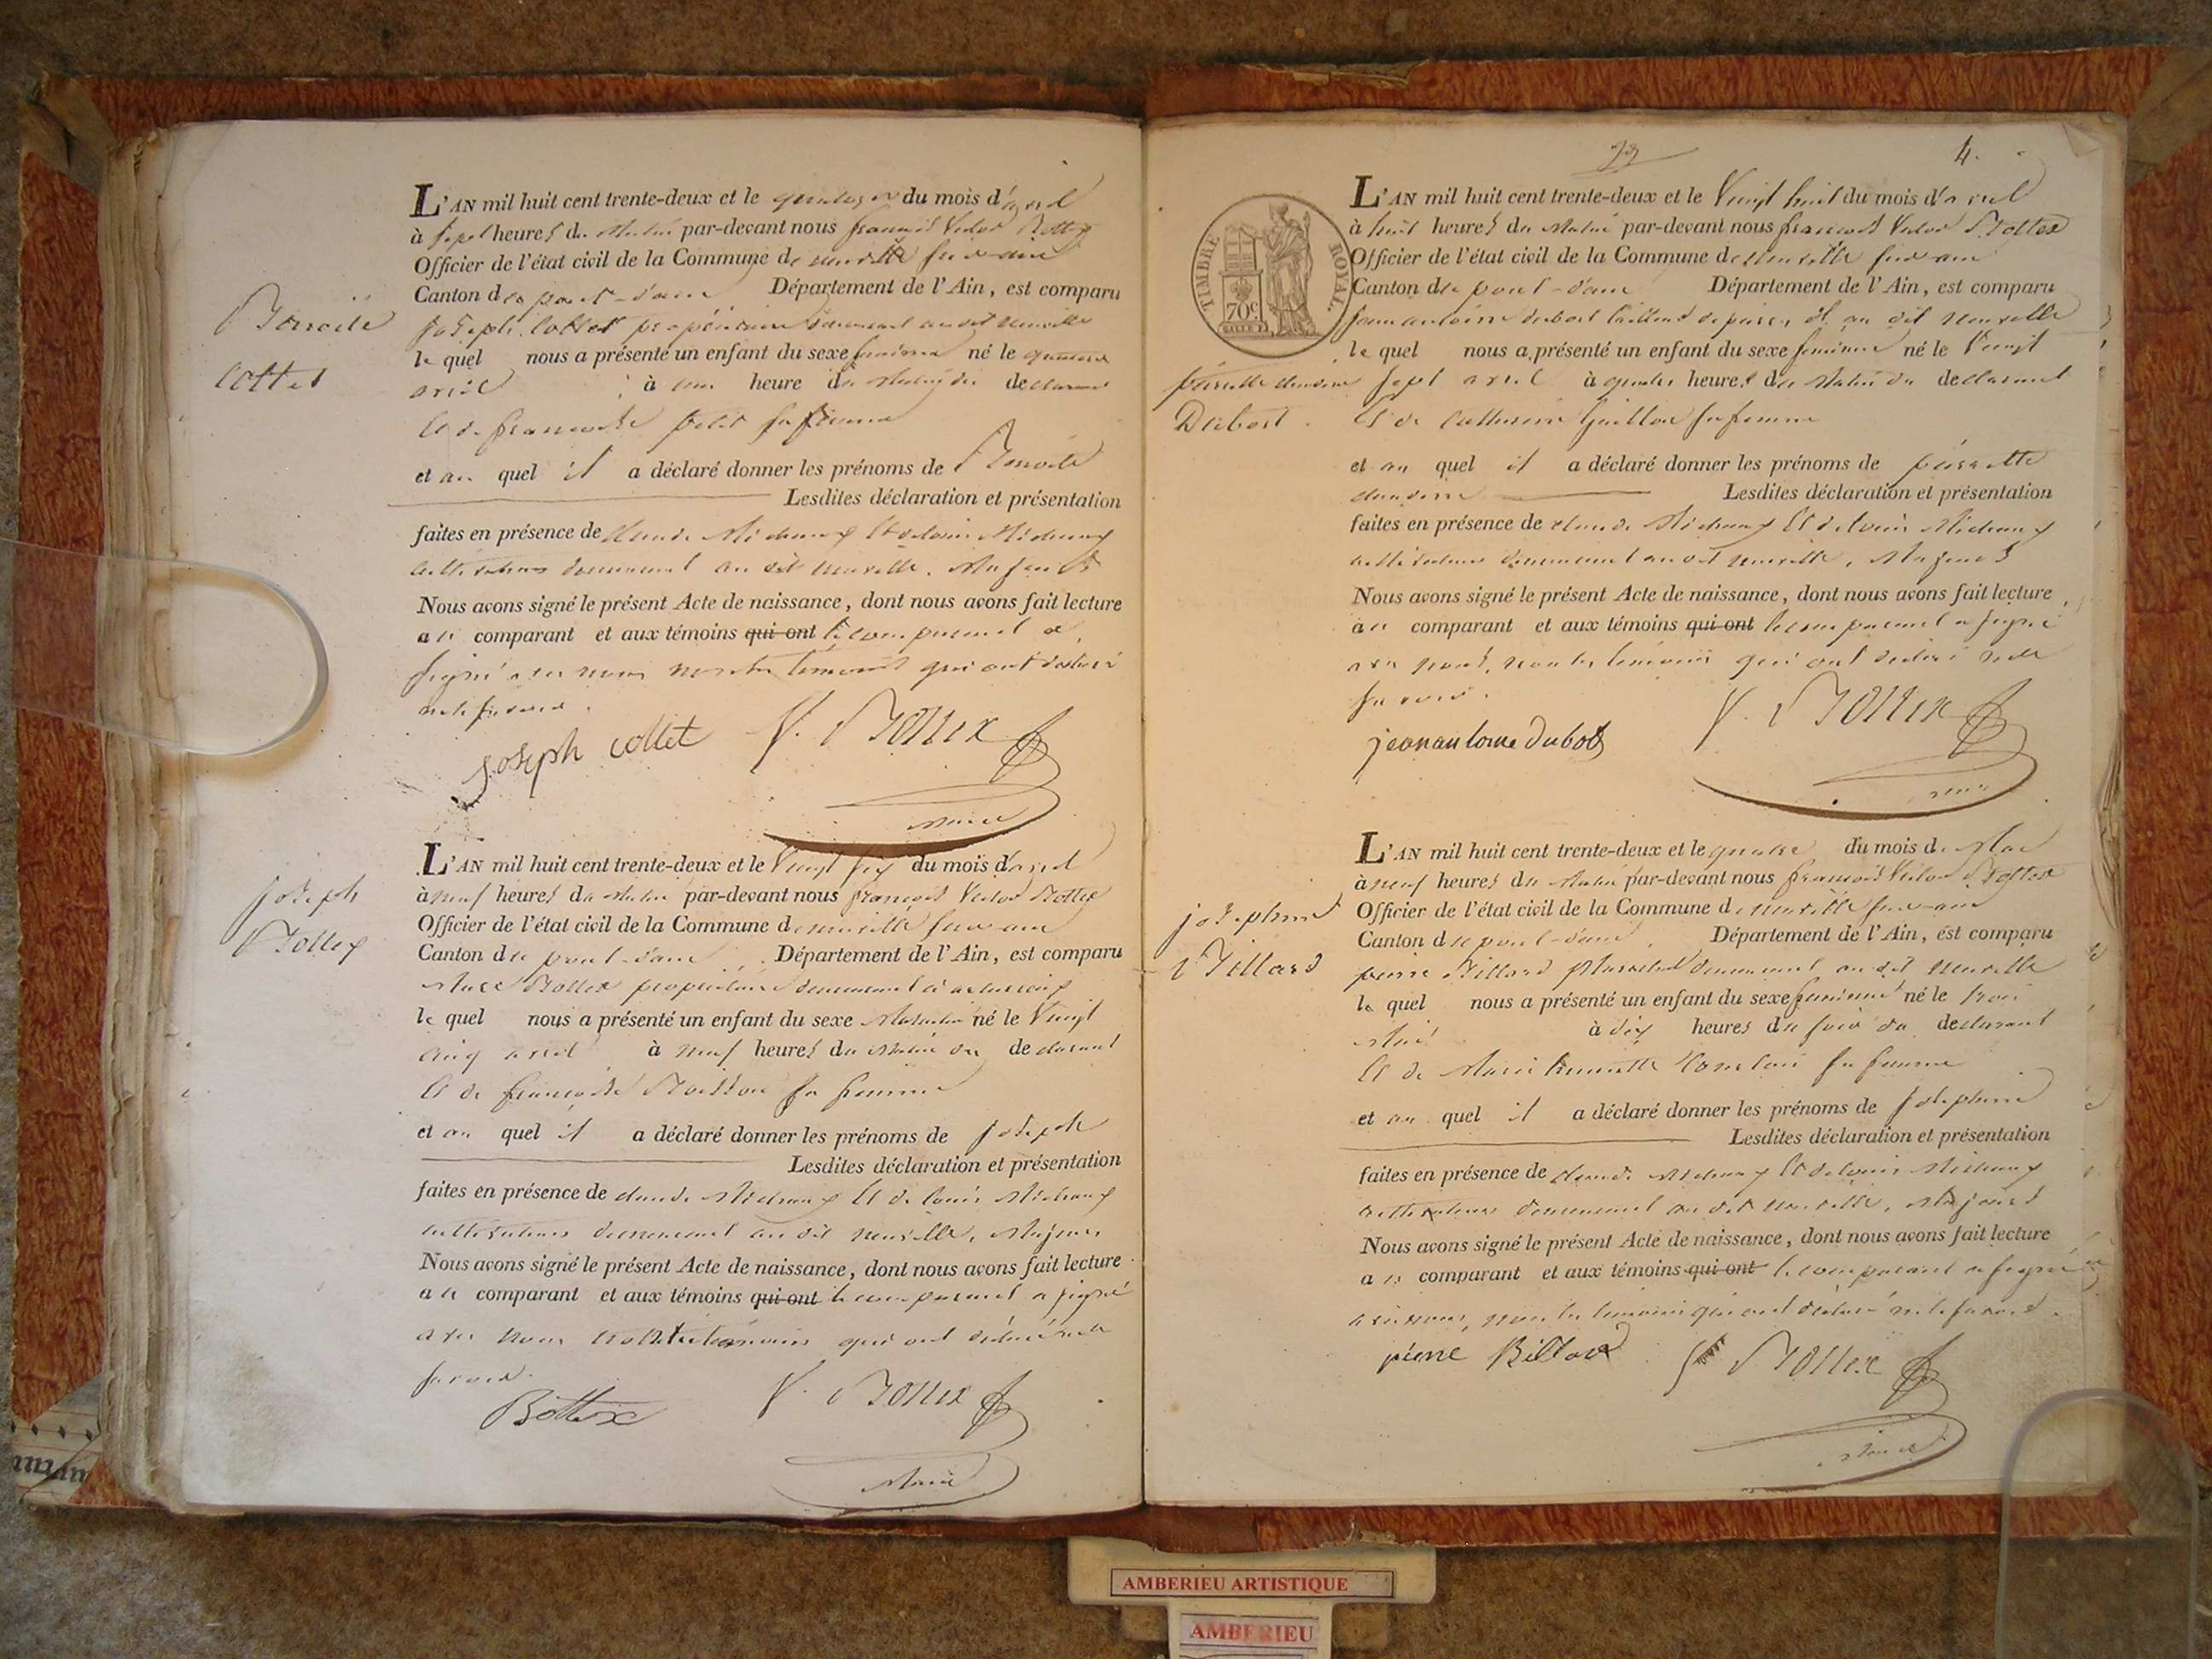 Benoite
Collet
L'AN mil huit cent trente-deux et le quinze du mois d'avril
à sept heures du Matin par-devant nous françois Victor Bottex
Officier de l'état civil de la Commune de neuville sur-ain
Canton de pont-d'ain Département de l'Ain, est comparu
joseph Collet propriétaire demeurant au dit neuville
le quel nous a présenté un enfant du sexe feminin né le
avril à une heure du Matin de declarant
Et de françoise petit sa femme
et au quel il a déclaré donner les prénoms de Benoite
Lesdites déclaration et présentation
faites en présence de claude Michaux Et de louis Michaux
cultivateurs demeurant au dit neuville, Majeurs
Nous avons signé le présent Acte de naissance, dont nous avons fait lecture
au comparant et aux témoins qui ont le comparant a
signé avec nous non les témoins qui ont déclaré
ne le savoir.
joseph collet V. Bottex
Maire
joseph
Bottex
L'AN mil huit cent trente-deux et le Vingt six du mois d'avril
à neuf heures du Matin par-devant nous françois Victor Bottex
Officier de l'état civil de la Commune de neuville sur-ain
Canton de pont-d'ain Département de l'Ain, est comparu
Bottex propriétaire demeurant à
le quel nous a présenté un enfant du sexe Masculin né le Vingt
cinq avril à neuf heures du Matin du declarant
Et de françoise sa femme
et au quel il a déclaré donner les prénoms de joseph
Lesdites déclaration et présentation
faites en présence de claude Michaux Et de louis Michaux
cultivateurs demeurant au dit neuville, Majeurs
Nous avons signé le présent Acte de naissance, dont nous avons fait lecture
au comparant et aux témoins qui ont le comparant a signé
avec nous non les témoins qui ont déclaré ne le
savoir.
Bottex V. Bottex
Maire
4.
TIMBRE ROYAL
70c
L'AN mil huit cent trente-deux et le Vingt huit du mois d'avril
à huit heures du Matin par-devant nous françois Victor Bottex
Officier de l'état civil de la Commune de neuville sur-ain
Canton de pont-d'ain Département de l'Ain, est comparu
jean antoine dubost tailleur de pierres d. au dit neuville
le quel nous a présenté un enfant du sexe feminin né le Vingt
sept avril à quatre heures du Matin du declarant
Et de Catherine Guillon sa femme
pierrette claudine
Dubost.
et au quel il a déclaré donner les prénoms de pierrette
claudine Lesdites déclaration et présentation
faites en présence de claude Michaux Et de louis Michaux
cultivateurs demeurant au dit neuville, Majeurs
Nous avons signé le présent Acte de naissance, dont nous avons fait lecture
au comparant et aux témoins qui ont le comparant a signé
avec nous, non les témoins qui ont déclaré ne le
savoir.
jean antoine dubost V. Bottex
Maire
josephine
Billard
L'AN mil huit cent trente-deux et le quatre du mois de Mai
à neuf heures du Matin par-devant nous françois Victor Bottex
Officier de l'état civil de la Commune de neuville sur-ain
Canton de pont-d'ain Département de l'Ain, est comparu
pierre Billard demeurant au dit neuville
le quel nous a présenté un enfant du sexe feminin né le trois
Mai à dix heures du soir du declarant
Et de Marie sa femme
et au quel il a déclaré donner les prénoms de josephine
Lesdites déclaration et présentation
faites en présence de claude Michaux Et de louis Michaux
cultivateurs demeurant au dit neuville, Majeurs
Nous avons signé le présent Acte de naissance, dont nous avons fait lecture
au comparant et aux témoins qui ont le comparant a signé
avec nous, non les témoins qui ont déclaré ne le savoir.
pierre Billard V. Bottex
Maire
AMBERIEU ARTISTIQUE
AMBERIEU